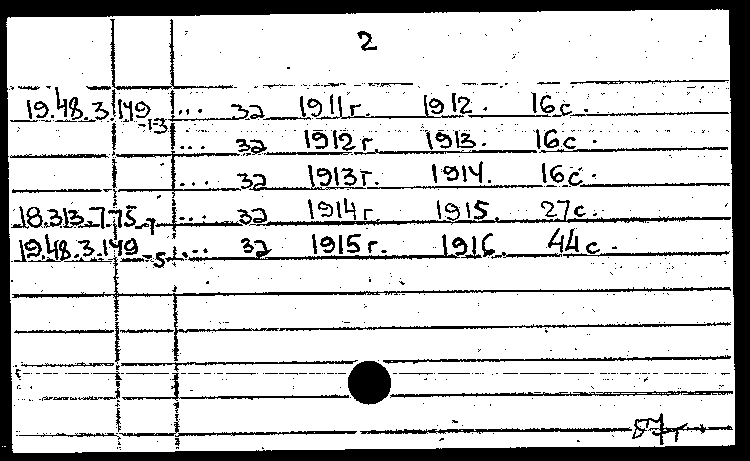 2
19.48.3.149-13 ... за 1911г. 1912. 16с.
... за 1912г. 1913. 16с.
... за 1913г. 1914. 16с.
18.313.7.75-7 ... за 1914г. 1915. 27с.
19.48.3.149-5 ... за 1915г. 1916. 44с.
87г.